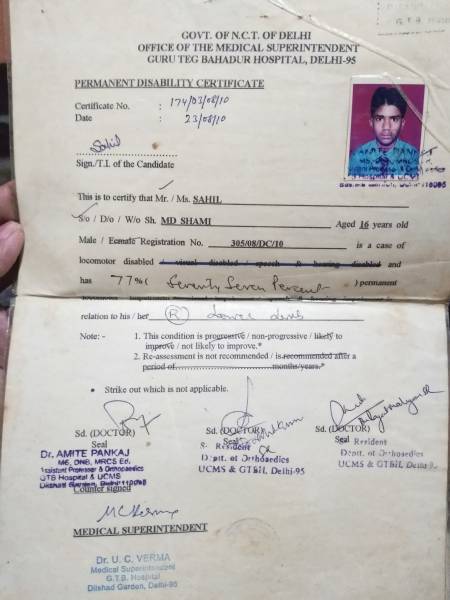 G.T.B. H
GOVT. OF N.C.T. OF DELHI
OFFICE OF THE MEDICAL SUPERINTENDENT
GURU TEG BAHADUR HOSPITAL, DELHI-95
PERMANENT DISABILITY CERTIFICATE
Certificate No. : 174/03/08/10
Date : 23/08/10
Sahil
Sign./T.I. of the Candidate
AMITE PANKAJ
MS, DNB, MRCS
Hospital & UCMS
This is to certify that Mr. / Ms. SAHIL
S/o / D/o / W/o Sh. MD SHAMI Aged 16 years old
Male / Female Registration No. 305/08/DC/10 is a case of
locomotor disabled / visual disabled / speech & hearing disabled and
has 77% ( Seventy Seven Percent ) permanent
relation to his / her (R) Lower Limb
Note: - 1. This condition is progressive / non-progressive / likely to
improve / not likely to improve.*
2. Re-assessment is not recommended / is recommended after a
period of months/years.*
• Strike out which is not applicable.
Sd. (DOCTOR) Sd. (DOCTOR) Sd. (DOCTOR)
Seal Seal Seal
Dr. AMITE PANKAJ
MS, DNB, MRCS Ed.
Assistant Professor & Orthopaedics
GTB Hospital & UCMS
Dilshad Garden, Delhi-110095
Resident
Deptt. of Orthopaedics
UCMS & GTBH, Delhi-95
Resident
Deptt. of Orthopaedics
UCMS & GTBH, Delhi-95
Counter signed
MEDICAL SUPERINTENDENT
Dr. U. C. VERMA
Medical Superintendent
G.T.B. Hospital
Dilshad Garden, Delhi-95